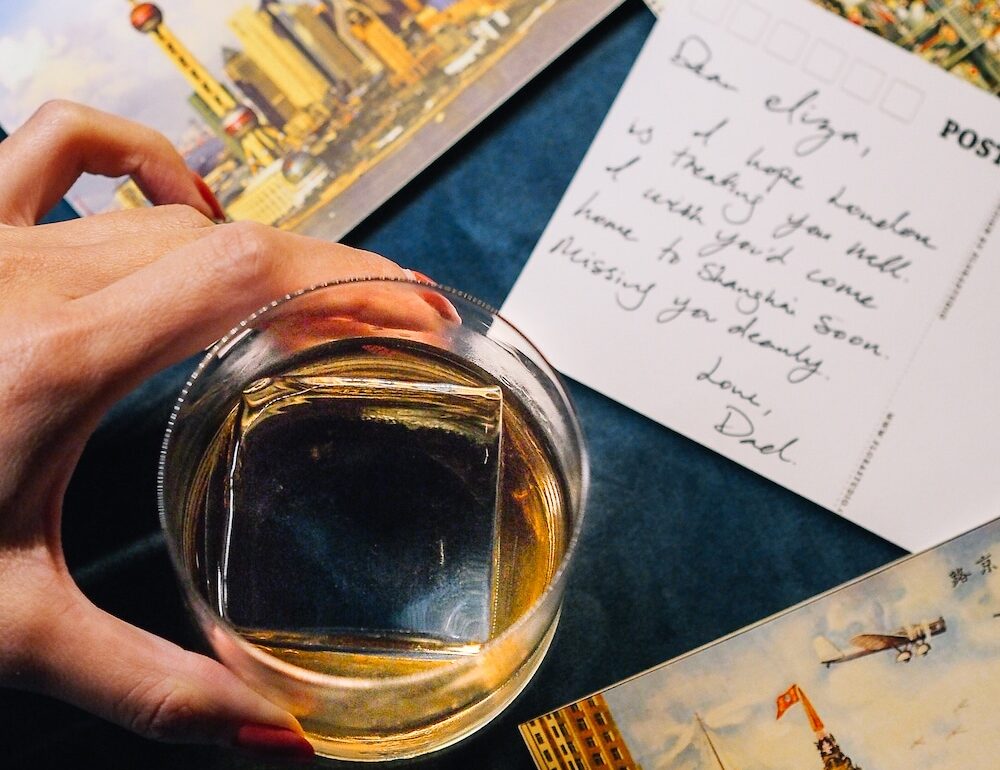 Dear Eliza,
POST
I hope London
is treating you well.
I wish you'd come
home to Shanghai soon.
Missing you dearly.
Love,
Dad.
路京